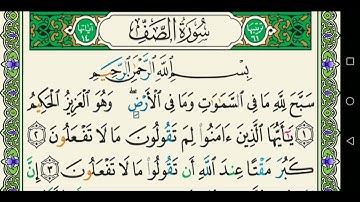 ترتيبها ٦١ سُورَةُ الصَّفِّ آياتها ١٤
بِسْمِ اللَّهِ الرَّحْمَٰنِ الرَّحِيمِ
سَبَّحَ لِلَّهِ مَا فِي السَّمَٰوَٰتِ وَمَا فِي الْأَرْضِ ۖ وَهُوَ الْعَزِيزُ الْحَكِيمُ
١ يَٰٓأَيُّهَا الَّذِينَ ءَامَنُوا لِمَ تَقُولُونَ مَا لَا تَفْعَلُونَ ٢
كَبُرَ مَقْتًا عِندَ اللَّهِ أَن تَقُولُوا مَا لَا تَفْعَلُونَ ٣ إِنَّ